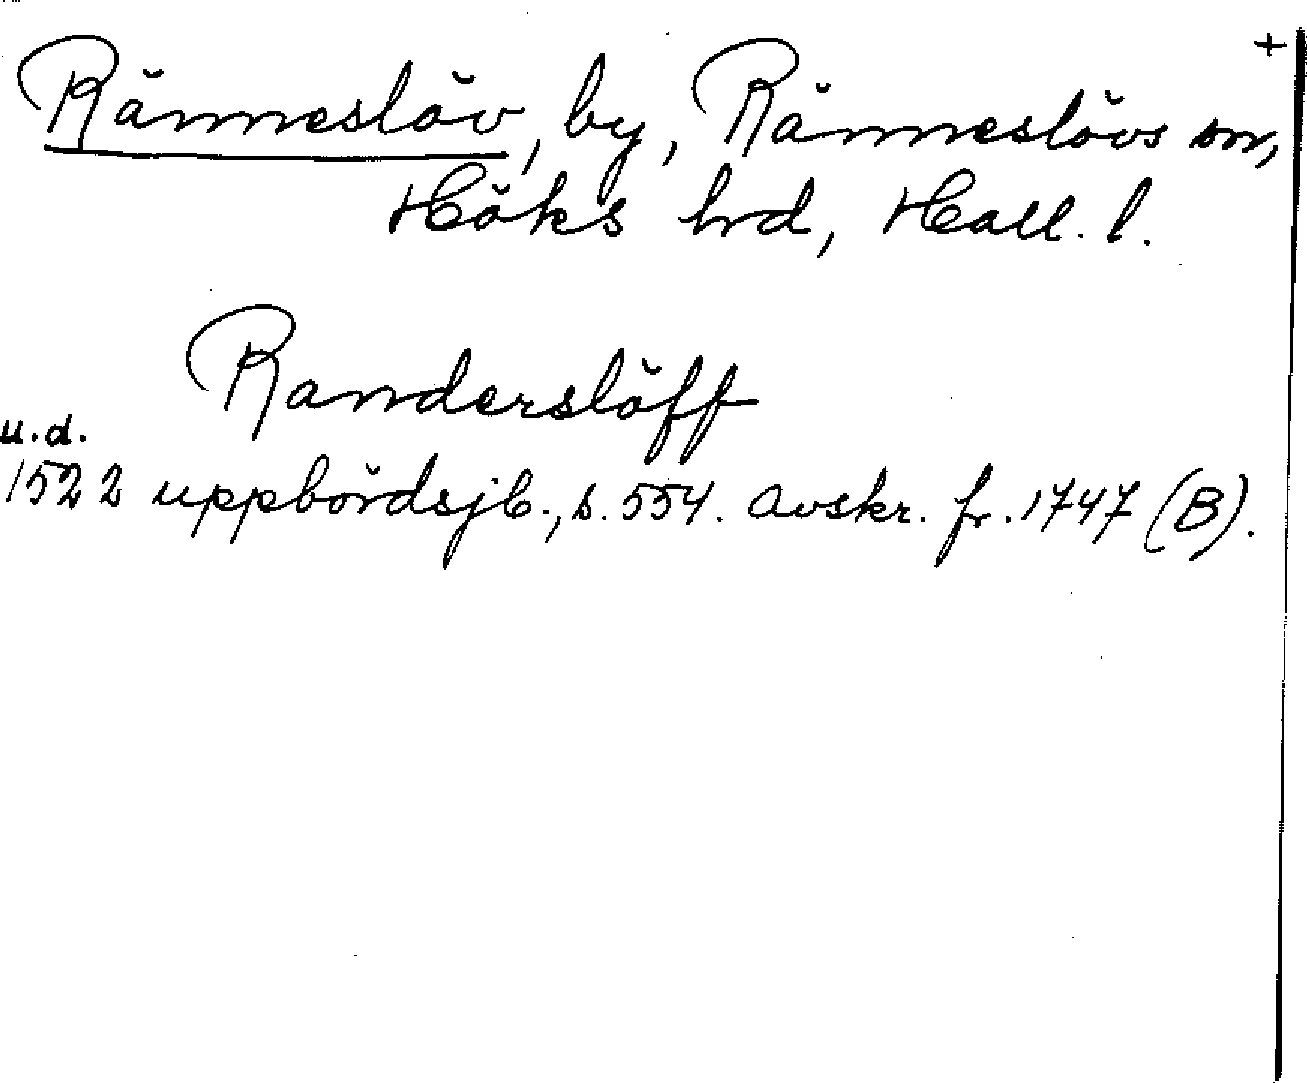 +
Ränneslöv, by, Ränneslövs sn,
Höks hrd, Hall. l.
Randerslöff
u.d.
1522 uppbördsjb., s. 554. Avskr. fr. 1747 (B).